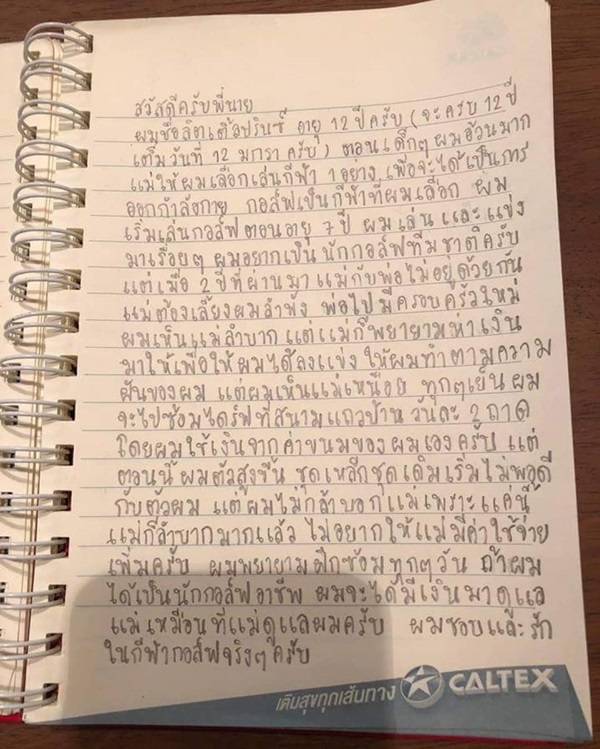 สวัสดีครับพี่นาย
ผมชื่อลิตเติ้ลปรินซ์ อายุ 12 ปีครับ (จะครบ 12 ปี
เต็มวันที่ 12 มกรา ครับ) ตอนเด็กๆ ผมอ้วนมาก
แม่ให้ผมเลือกเล่นกีฬา 1 อย่าง เพื่อจะได้เป็นการ
ออกกำลังกาย กอล์ฟเป็นกีฬาที่ผมเลือก ผม
เริ่มเล่นกอล์ฟตอนอายุ 7 ปี ผมเล่น และแข่ง
มาเรื่อยๆ ผมอยากเป็นนักกอล์ฟทีมชาติครับ
แต่เมื่อ 2 ปีที่ผ่านมา แม่กับพ่อไม่อยู่ด้วยกัน
แม่ต้องเลี้ยงผมลำพัง พ่อไปมีครอบครัวใหม่
ผมเห็นแม่ลำบาก แต่แม่ก็พยายามหาเงิน
มาให้เพื่อให้ผมได้ลงแข่ง ให้ผมทำตามความ
ฝันของผม แต่ผมเห็นแม่เหนื่อย ทุกๆเย็น ผม
จะไปซ้อมไดร์ฟที่สนามแถวบ้าน วันละ 2 ถาด
โดยผมใช้เงินจากค่าขนมของผมเองครับ แต่
ตอนนี้ ผมตัวสูงขึ้น ชุดเหล็กชุดเดิมเริ่มไม่พอดี
กับตัวผม แต่ผมไม่กล้าบอกแม่เพราะแค่นี้
แม่ก็ลำบากมากแล้ว ไม่อยากให้แม่มีค่าใช้จ่าย
เพิ่มครับ ผมพยายามฝึกซ้อมทุกๆวัน ถ้าผม
ได้เป็นนักกอล์ฟอาชีพ ผมจะได้มีเงินมาดูแล
แม่เหมือนที่แม่ดูแลผมครับ ผมชอบและรัก
ในกีฬากอล์ฟจริงๆครับ
เติมสุขทุกเส้นทาง CALTEX